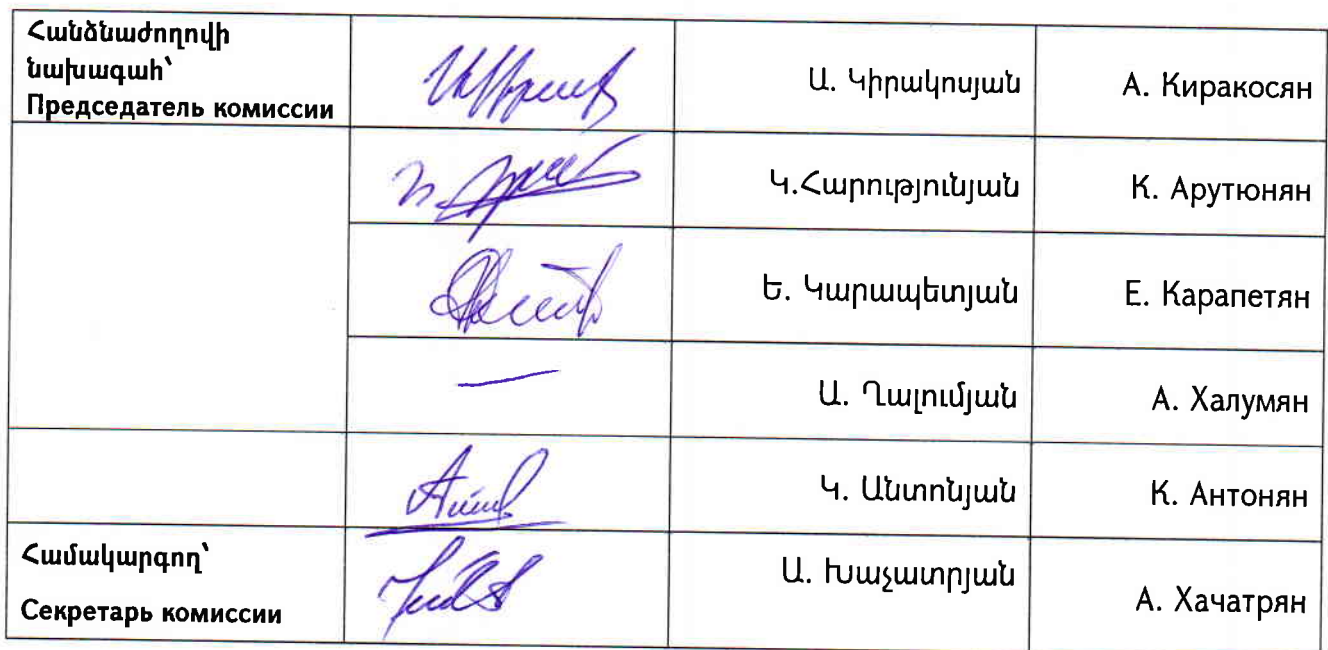 Հանձնաժողովի
նախագահ՝
Председатель комиссии
Ա. Կիրակոսյան
А. Киракосян
Կ.Հարությունյան
К. Арутюнян
Ե. Կարապետյան
Е. Карапетян
Ա. Ղալումյան
А. Халумян
Կ. Անտոնյան
К. Антонян
Համակարգող՝
Секретарь комиссии
Ա. Խաչատրյան
А. Хачатрян